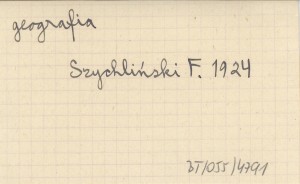 geografia
Szychliński F. 1924
BT/055/4791